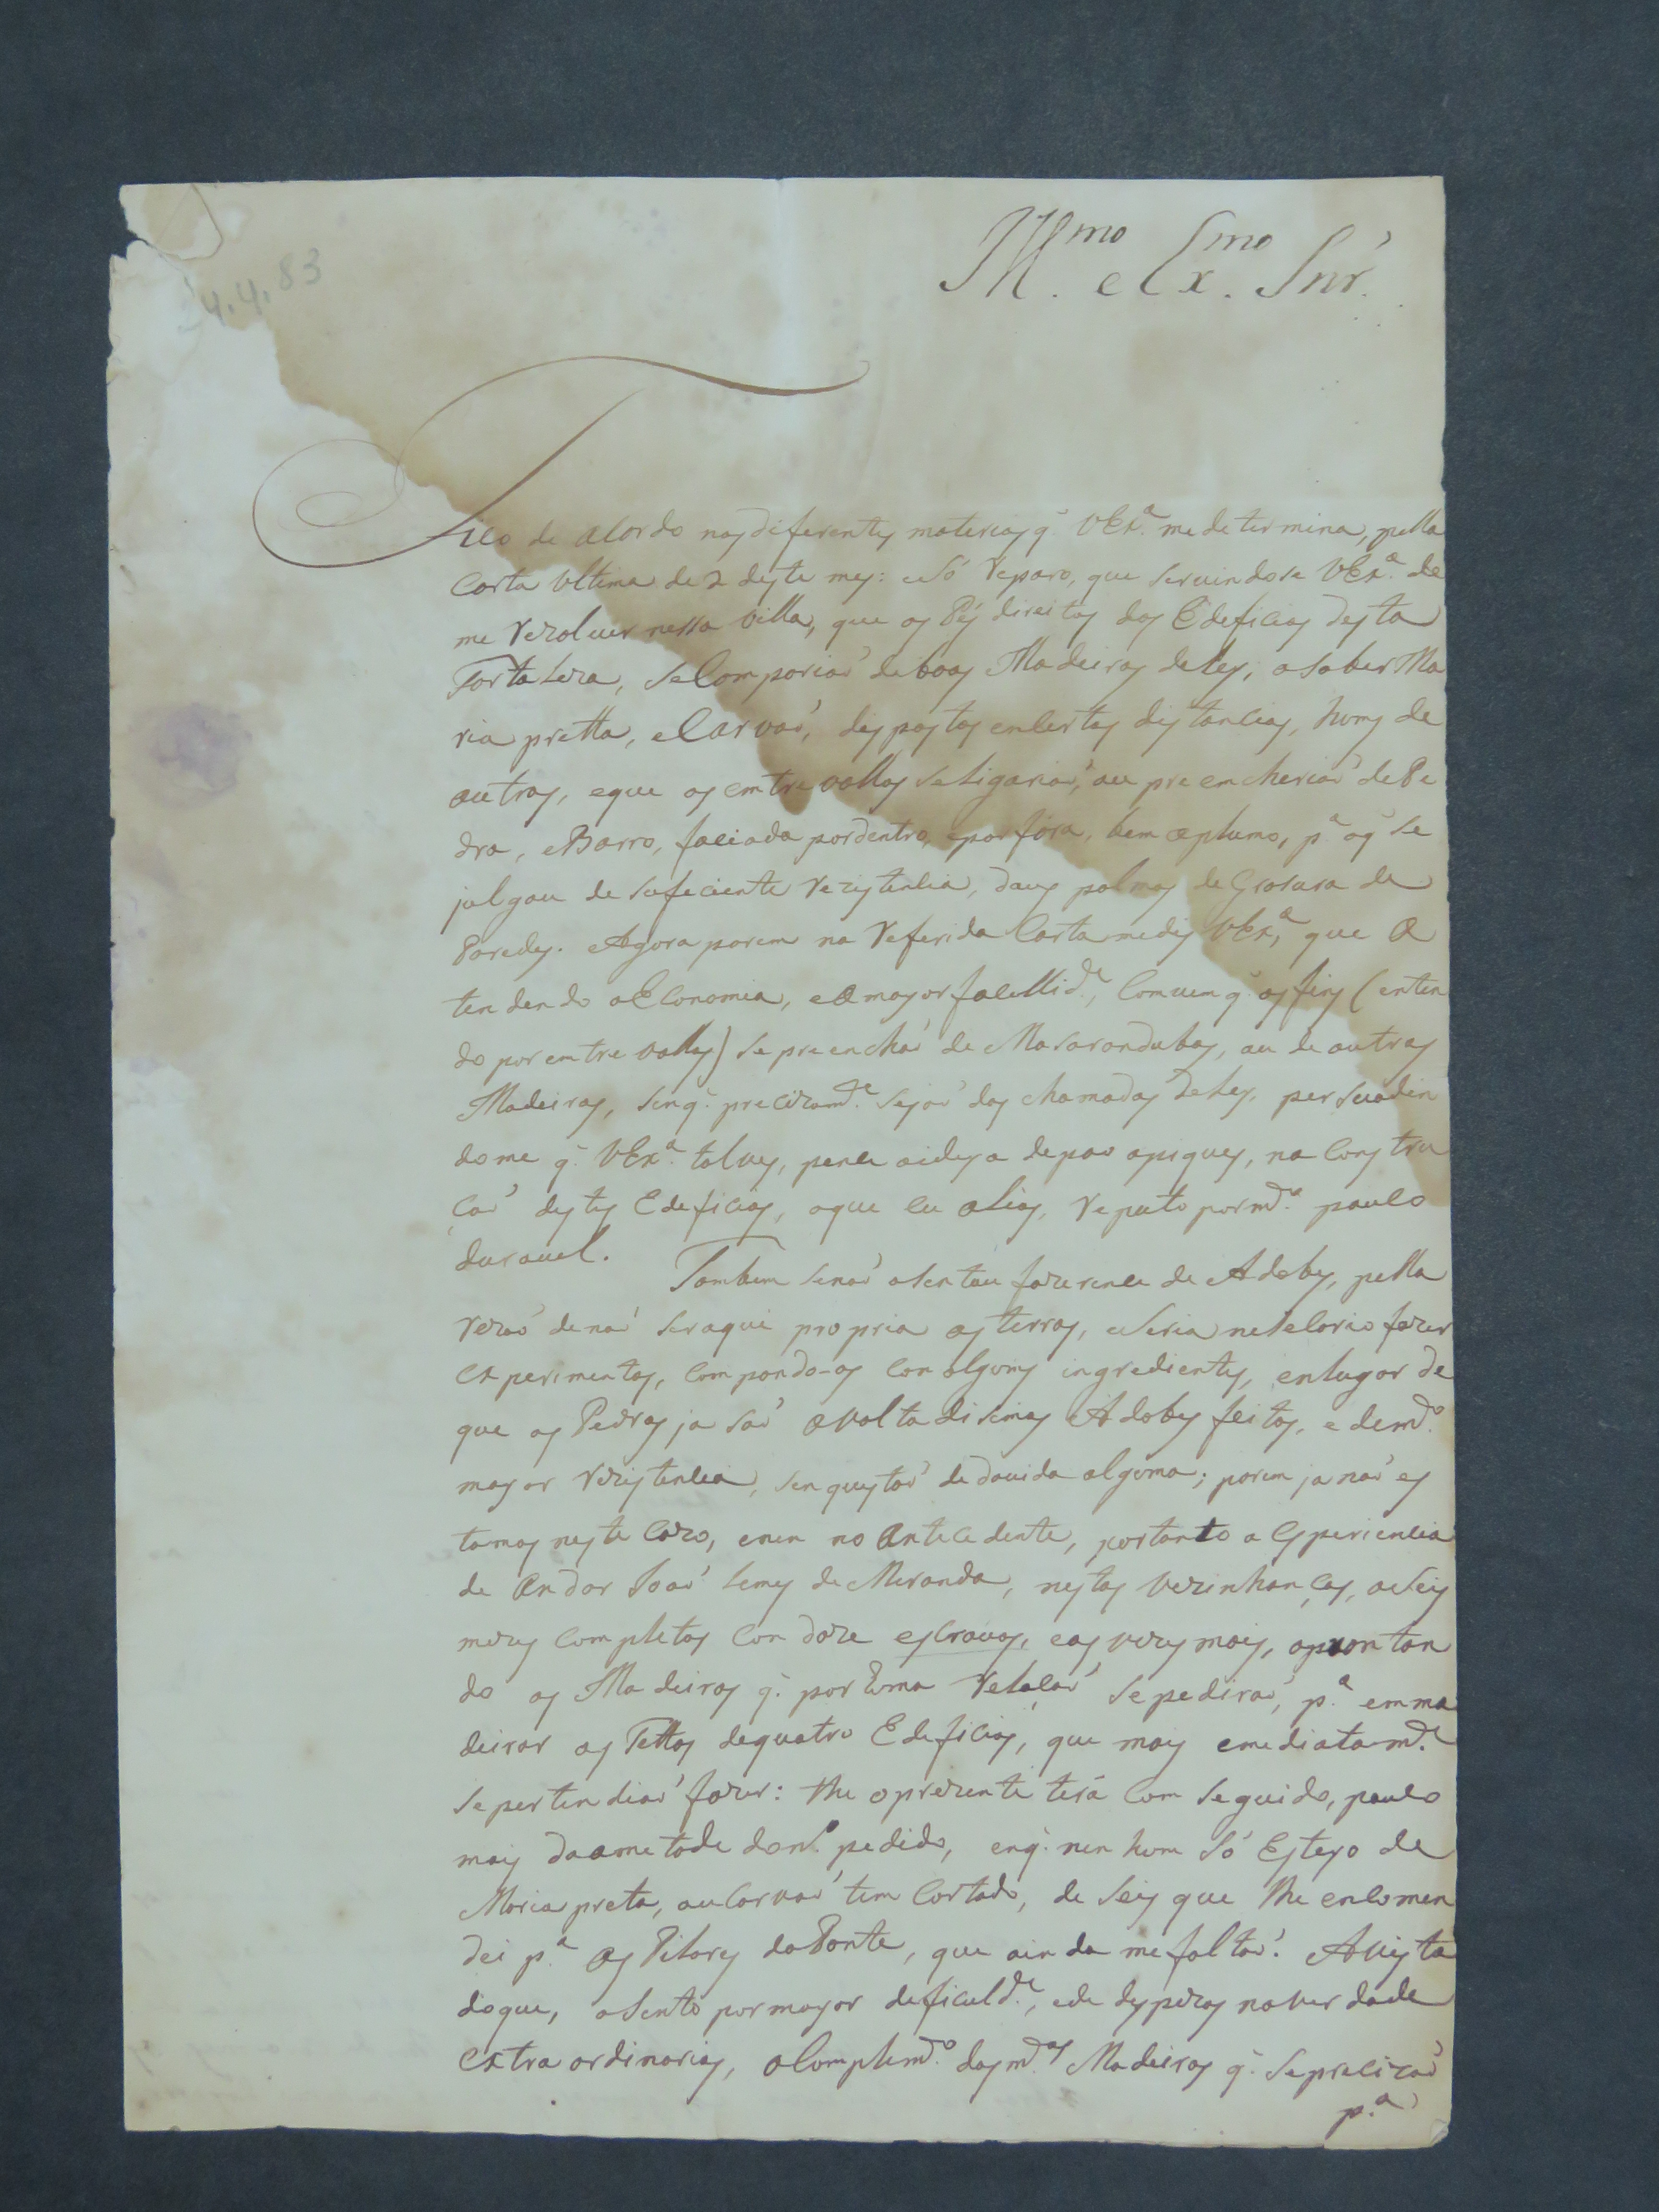 4.4.83
Ill.mo e Ex.mo Snr.
Fico de acordo nas diferentes materias q̃ VEx.ª me determina, pella
Carta ultima de 2 deste mes: e só reparo, que servindose VEx.ª de
me rezolver nessa villa, que os Pés direitos dos Edeficios desta
Fortaleza, se Comporiaõ de boas Madeiras de ley, a saber Ma
ria pretta, e Carvaõ, despostos en certas distancias, huns de
outros, e que os emtrevallos se ligariaõ, ou preencheriaõ de Pe
dra, e Barro, faciada por dentro, e por fóra, bem a plumo, p.ª o q̃ se
julgou de suficiente rezistencia, dous palmos de Grosura de
Paredes. Agora porem na referida Carta me diz VEx.ª, que a
tendendo a Economia, e a mayor facellid.e, Comvem q̃ os fins (enten
do por emtrevallos) se preenchaõ de Masarandubas, ou de outras
Madeiras, sen q̃ precizam.te sejaõ das chamadas de ley, persuadin
dome q̃ VEx.ª talves, pence a ideya de pao apiques, na Constru
çaõ destes Edeficios, o que eu alias, reputo por m.to pouco
duravel. Tambem se naõ asentou fazerence de Adobes, pella
rezaõ de naõ ser aqui propria as terras, e seria necelario fazer
experimentos, compondo-os con alguns ingredientes, en lugar de
que as Pedras ja saõ a volta disimas Adobes feitos, e de m.to
mayor rezistencia, sen questaõ de douida alguma; porem ja naõ es
tamos neste Cazo, e nen no antecedente, portanto a Esperiencia
de andar Joaõ Lemes de Miranda, nestas vezinhanças, a seis
mezes completos con doze escravos, e as vezes mais, apron tan
do as Madeiras q̃ por huma relalaõ se pediraõ, p.ª emma
deirar os Tettos de quatro Edeficios, que mais emediatam.te
se pertendiaõ fazer: the o prezente terá comseguido, pouco
mais da ametade do n.º pedido, en q̃ nen hum só Esteyo de
Maria preta, ou Carvaõ tem Cortado, de seis que lhe encomen
dei p.ª os Pilares da Ponte, que ainda me faltaõ. A vista
do que, asento por mayor deficuld.e, e de despezas na verdade
extra ordinarias, o Complem.to das m.tas Madeiras q̃ se precizaõ
p.ª